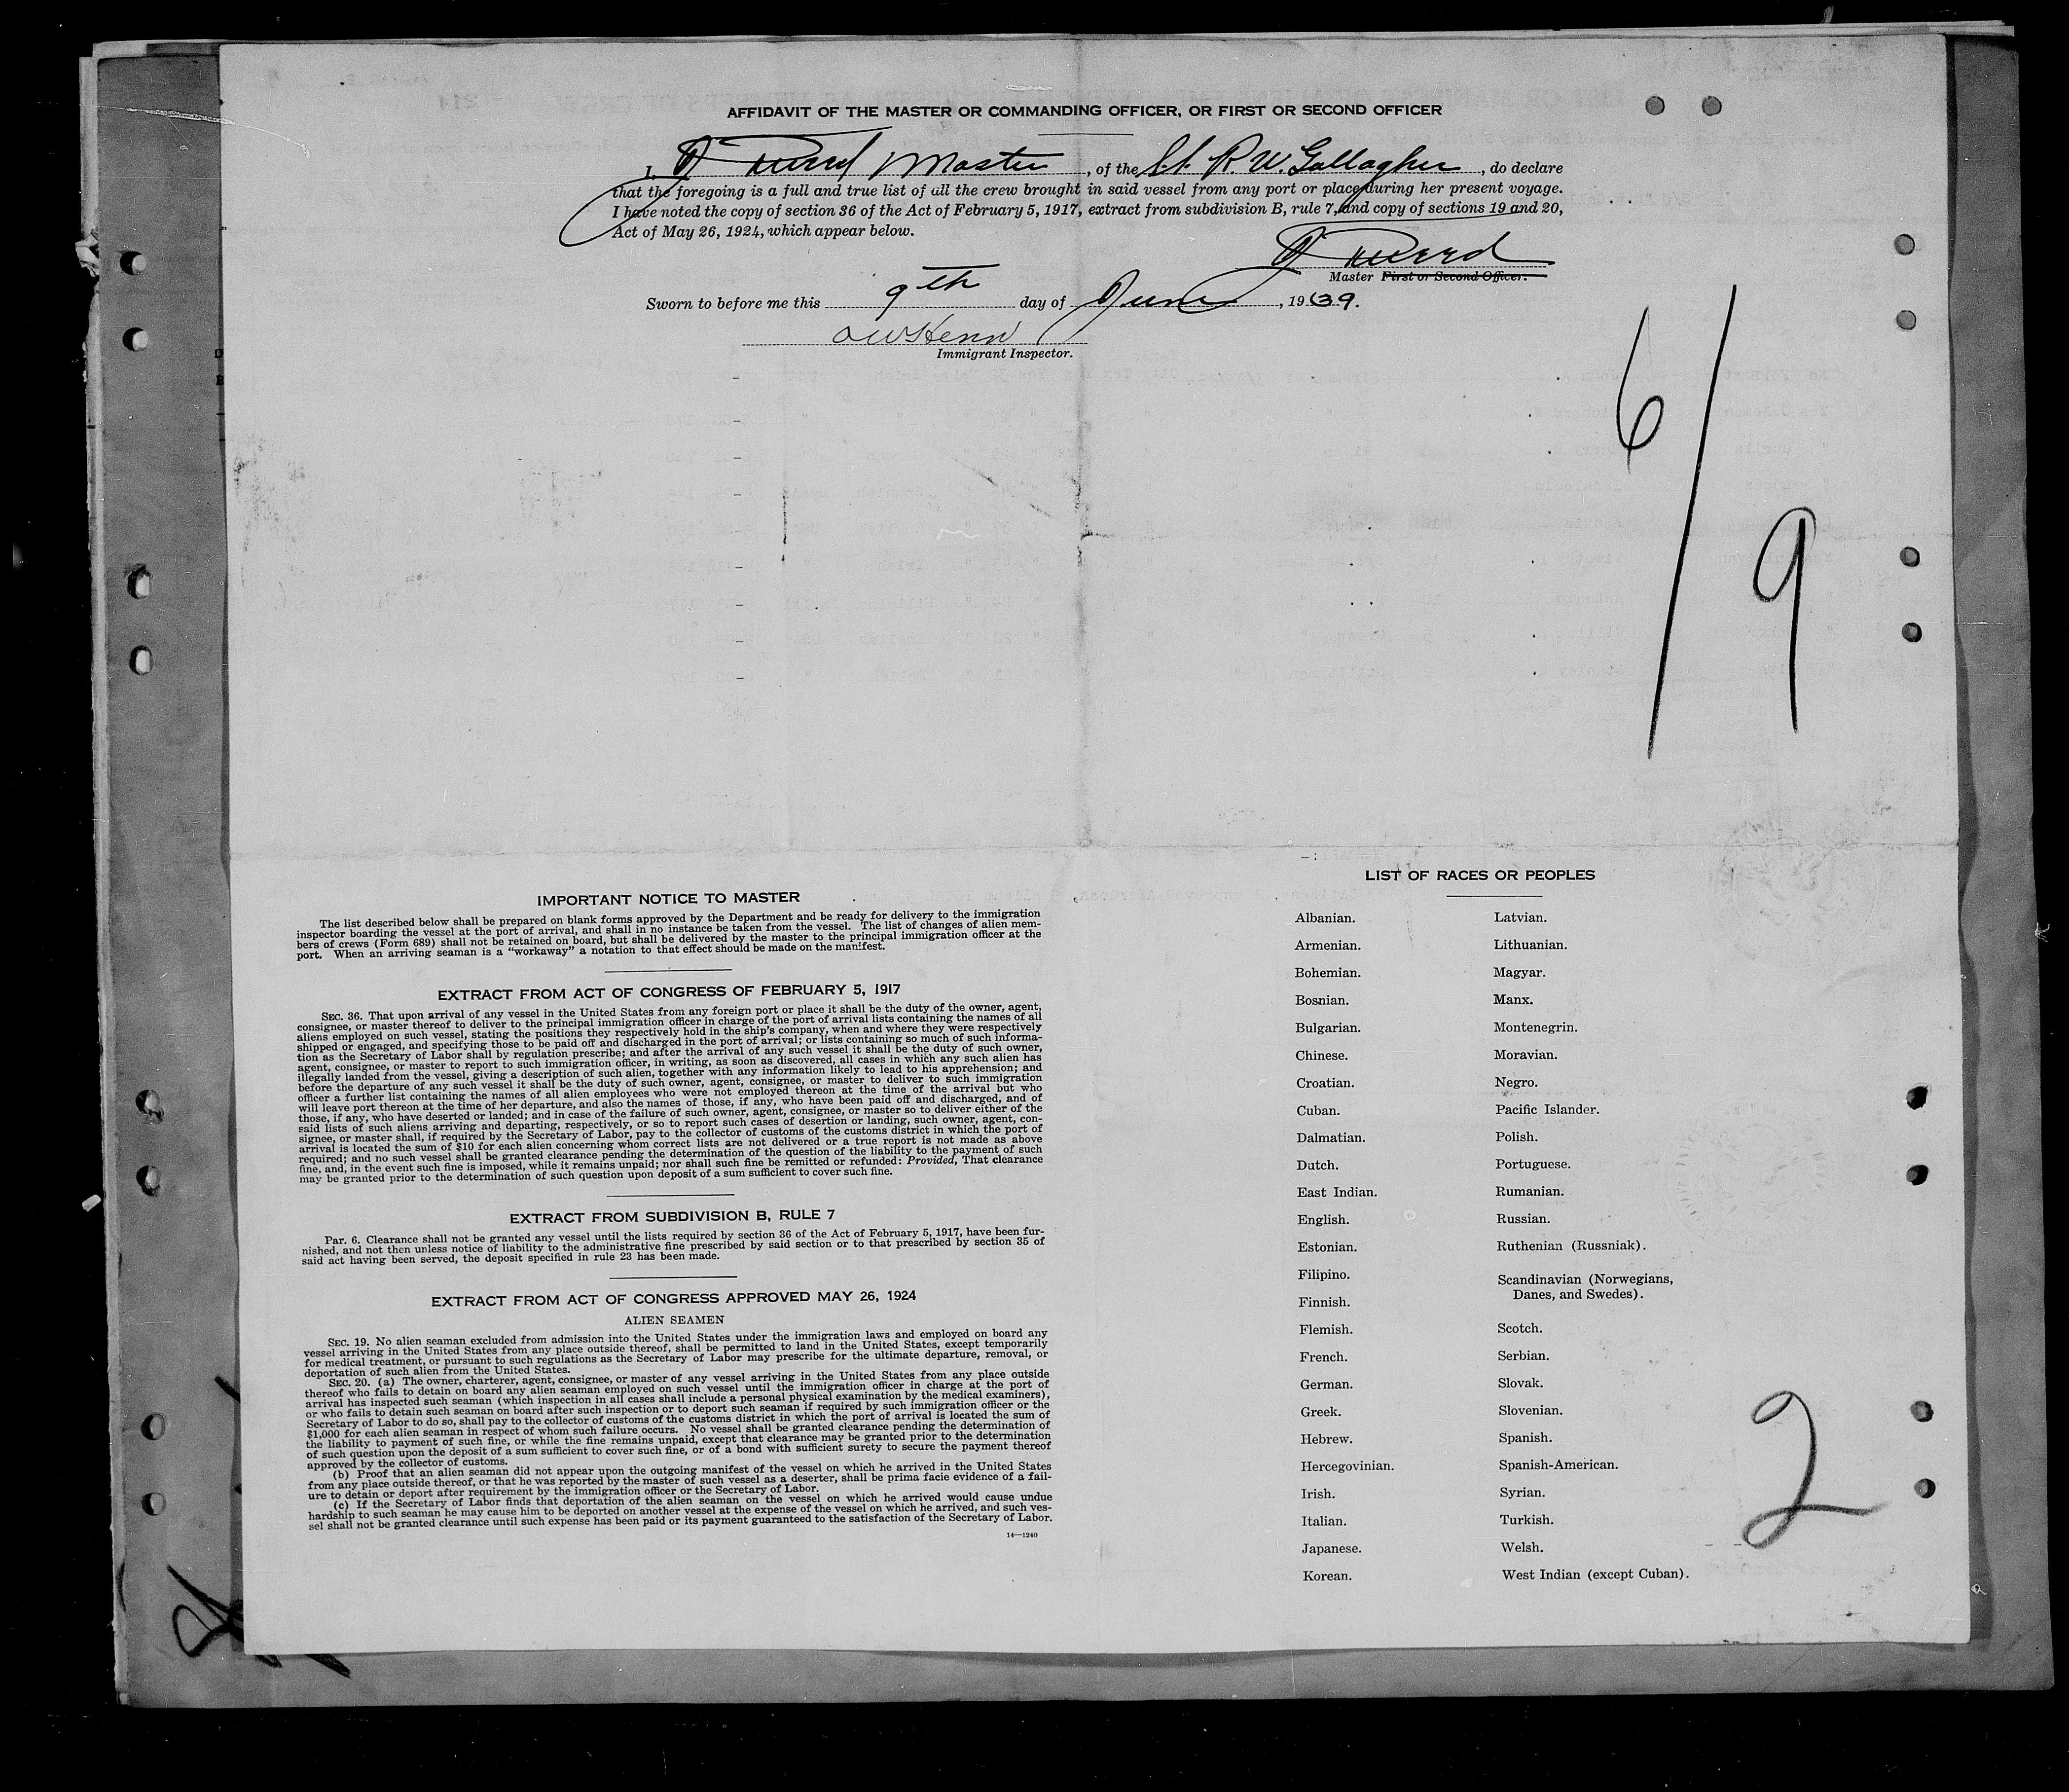 AFFIDAVIT OF THE MASTER OR COMMANDING OFFICER, OR FIRST OR SECOND OFFICER
I, Master, of the R. W. Gallagher, do declare
that the foregoing is a full and true list of all the crew brought in said vessel from any port or place during her present voyage.
I have noted the copy of section 36 of the Act of February 5, 1917, extract from subdivision B, rule 7, and copy of sections 19 and 20,
Act of May 26, 1924, which appear below.
Master First or Second Officer.
Sworn to before me this 9th day of June, 1939.
Immigrant Inspector.
6/9
IMPORTANT NOTICE TO MASTER
The list described below shall be prepared on blank forms approved by the Department and be ready for delivery to the immigration
inspector boarding the vessel at the port of arrival, and shall in no instance be taken from the vessel. The list of changes of alien mem-
bers of crews (Form 689) shall not be retained on board, but shall be delivered by the master to the principal immigration officer at the
port. When an arriving seaman is a "workaway" a notation to that effect should be made on the manifest.
EXTRACT FROM ACT OF CONGRESS OF FEBRUARY 5, 1917
SEC. 36. That upon arrival of any vessel in the United States from any foreign port or place it shall be the duty of the owner, agent,
consignee, or master thereof to deliver to the principal immigration officer in charge of the port of arrival lists containing the names of all
aliens employed on such vessel, stating the positions they respectively hold in the ship's company, when and where they were respectively
shipped or engaged, and specifying those to be paid off and discharged in the port of arrival; or lists containing so much of such informa-
tion as the Secretary of Labor shall by regulation prescribe; and after the arrival of any such vessel it shall be the duty of such owner,
agent, consignee, or master to report to such immigration officer, in writing, as soon as discovered, all cases in which any such alien has
illegally landed from the vessel, giving a description of such alien, together with any information likely to lead to his apprehension; and
before the departure of any such vessel it shall be the duty of such owner, agent, consignee, or master to deliver to such immigration
officer a further list containing the names of all alien employees who were not employed thereon at the time of the arrival but who
will leave port thereon at the time of her departure, and also the names of those, if any, who have been paid off and discharged, and of
those, if any, who have deserted or landed; and in case of the failure of such owner, agent, consignee, or master so to deliver either of the
said lists of such aliens arriving and departing, respectively, or so to report such cases of desertion or landing, such owner, agent, con-
signee, or master shall, if required by the Secretary of Labor, pay to the collector of customs of the customs district in which the port of
arrival is located the sum of $10 for each alien concerning whom correct lists are not delivered or a true report is not made as above
required; and no such vessel shall be granted clearance pending the determination of the question of the liability to the payment of such
fine, and, in the event such fine is imposed, while it remains unpaid; nor shall such fine be remitted or refunded: Provided, That clearance
may be granted prior to the determination of such question upon deposit of a sum sufficient to cover such fine.
EXTRACT FROM SUBDIVISION B, RULE 7
Par. 6. Clearance shall not be granted any vessel until the lists required by section 36 of the Act of February 5, 1917, have been fur-
nished, and not then unless notice of liability to the administrative fine prescribed by said section or to that prescribed by section 35 of
said act having been served, the deposit specified in rule 23 has been made.
EXTRACT FROM ACT OF CONGRESS APPROVED MAY 26, 1924
ALIEN SEAMEN
SEC. 19. No alien seaman excluded from admission into the United States under the immigration laws and employed on board any
vessel arriving in the United States from any place outside thereof, shall be permitted to land in the United States, except temporarily
for medical treatment, or pursuant to such regulations as the Secretary of Labor may prescribe for the ultimate departure, removal, or
deportation of such alien from the United States.
SEC. 20. (a) The owner, charterer, agent, consignee, or master of any vessel arriving in the United States from any place outside
thereof who fails to detain on board any alien seaman employed on such vessel until the immigration officer in charge at the port of
arrival has inspected such seaman (which inspection in all cases shall include a personal physical examination by the medical examiners),
or who fails to detain such seaman on board after such inspection or to deport such seaman if required by such immigration officer or the
Secretary of Labor to do so, shall pay to the collector of customs of the customs district in which the port of arrival is located the sum of
$1,000 for each alien seaman in respect of whom such failure occurs. No vessel shall be granted clearance pending the determination of
the liability to payment of such fine, or while the fine remains unpaid, except that clearance may be granted prior to the determination
of such question upon the deposit of a sum sufficient to cover such fine, or of a bond with sufficient surety to secure the payment thereof
approved by the collector of customs.
(b) Proof that an alien seaman did not appear upon the outgoing manifest of the vessel on which he arrived in the United States
from any place outside thereof, or that he was reported by the master of such vessel as a deserter, shall be prima facie evidence of a fail-
ure to detain or deport after requirement by the immigration officer or the Secretary of Labor.
(c) If the Secretary of Labor finds that deportation of the alien seaman on the vessel on which he arrived would cause undue
hardship to such seaman he may cause him to be deported on another vessel at the expense of the vessel on which he arrived, and such ves-
sel shall not be granted clearance until such expense has been paid or its payment guaranteed to the satisfaction of the Secretary of Labor.
14—1240
LIST OF RACES OR PEOPLES
Albanian.
Armenian.
Bohemian.
Bosnian.
Bulgarian.
Chinese.
Croatian.
Cuban.
Dalmatian.
Dutch.
East Indian.
English.
Estonian.
Filipino.
Finnish.
Flemish.
French.
German.
Greek.
Hebrew.
Hercegovinian.
Irish.
Italian.
Japanese.
Korean.
Latvian.
Lithuanian.
Magyar.
Manx.
Montenegrin.
Moravian.
Negro.
Pacific Islander.
Polish.
Portuguese.
Rumanian.
Russian.
Ruthenian (Russniak).
Scandinavian (Norwegians,
Danes, and Swedes).
Scotch.
Serbian.
Slovak.
Slovenian.
Spanish.
Spanish-American.
Syrian.
Turkish.
Welsh.
West Indian (except Cuban).
2